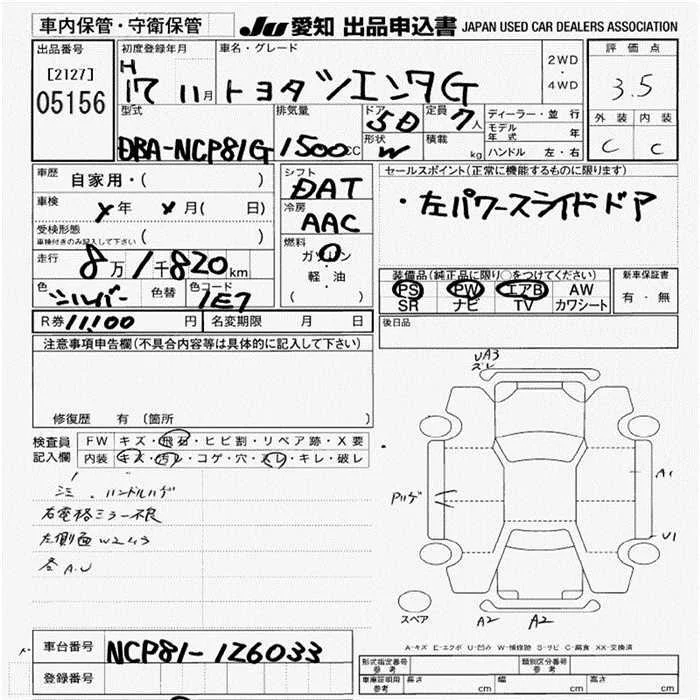 車内保管・守衛保管
JU 愛知 出品申込書 JAPAN USED CAR DEALERS ASSOCIATION
出品番号
[2127]
05156
初度登録年月
H
17 11月
車名・グレード
トヨタ シエンタG
2WD
・
4WD
評価点
3.5
外装 内装
C C
型式
DBA-NCP81G
排気量
1500cc
ドア
5D
形状
W
定員
7人
積載
kg
ディーラー・並行
モデル年式 年
ハンドル 左・右
車歴
自家用・( )
車検
年 月( 日)
受検形態
車検付きのみ記入して下さい ( )
走行
8万1千820km
色
シルバー
色替
色コード
1E7
シフト
DAT
冷房
AAC
燃料
ガソリン
・
軽・油
( )
セールスポイント(正常に機能するものに限ります)
・左パワースライドドア
装備品(純正品に限り○をつけてください)
PS PW エアB AW
SR ナビ TV カワシート
新車保証書
有・無
R券 11,100 円
名変期限 月 日
後日品
注意事項申告欄(不具合内容等は具体的に記入して下さい)
修復歴 有 (箇所 )
検査員
記入欄
FW キズ・飛石・ヒビ割・リペア跡・X要
内装 キズ・汚レ・コゲ・穴・スレ・キレ・破レ
シミ・ハンドルハゲ
右電格ミラー不良
左側面W2 43
各A.U
UA3
ズレ
Pハゲ
A1
U1
スペア
A2
A2
A-キズ E-エクボ U-凹み W-補修跡 S-サビ C-腐食 XX-交換済
車台番号
NCP81-126033
登録番号
形式指定番号
参考
類別区分番号
参考
車庫証明用
参考
長さ cm
幅 cm
高さ cm